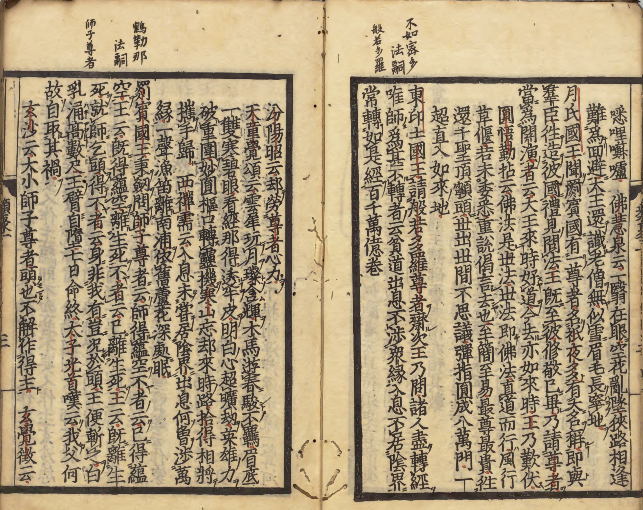 不如密多
法嗣
般若多羅
噁哩嚩嚧　佛慧泉云一翳在眼空花亂墜狹路相逢
難為回避大王還識老僧無似雪眉毛長窣地
月氏國王聞罽賓國有一尊者名祇夜多有大名稱即與
羣臣徃造彼國禮見問法王旣至彼修敬已畢乃請尊者
當為開演者云大王來時好道今去亦如來時王乃歎伏
圓悟勤拈云佛法是世法世法即佛法直道而行風行
草偃若未委悉重說偈言去也至簡至易最尊最貴徃
還千聖頂𩕳頭世出世間不思議彈指圓成八萬門一
超直入如來地
東印土國王請般若多羅尊者齋次王乃問諸人盡轉經
唯師為甚不轉者云貧道出息不涉衆緣入息不居陰界
常轉如是經百千萬億卷
鶴勒那
法嗣
師子尊者
汾陽昭云却勞尊者心力
天童覺頌云雲犀玩月璨含輝木馬遊春駿不羈眉底
一雙寒碧眼看經那得透牛皮明白心超曠劫英雄力
破重圍妙圓樞口轉靈機寒山忘却來時路拾得相將
攜手歸　西禪需云入息未嘗居陰界出息何曾涉萬
緣一聲漁笛離南浦依舊蘆花深處眠
罽賓國王秉劒問師子尊者云師得蘊空不者云已得蘊
空王云旣得蘊空離生死不者云已離生死王云旣離生
死就師乞頭得不者云身非我有豈况於頭王便斬之白
乳涌高數尺王臂自墮七日命終太子光首嘆云我父何
故自取其禍
玄沙云大小師子尊者頭也不解作得主　玄覺徵云